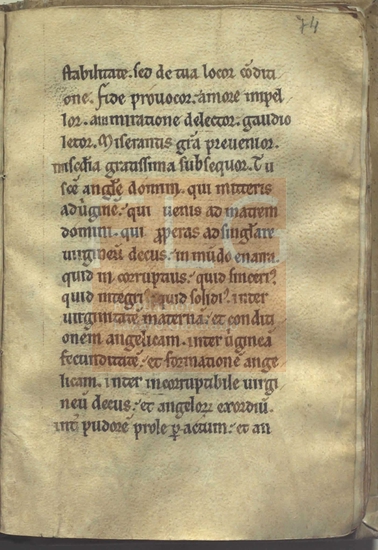 74
stabilitate. sed de tua locor cōditi
one. Fide provocor. amore inpel
lor. ammiratione delector. gaudio
letor. Miserantis grā prevenior.
misc̄dia gratissima subsequor. Tu
sc̄e angl̄e domini. qui mitteris
ad ūgīne. qui venis ad matrem
domini. qui ꝓperas ad singlāre
virgineū decus. in mūdo enarra
quid in corruptius. quid sinceri?
quid integri? quid solidi? inter
virginitatē maternā. et conditi
onem angelicam. inter ūgineā
fecunditatē. et formationē ange
licam. inter incorruptibile virgi
neū decus. et angeloꝝ exordiū.
int̄ pudore prole ꝑactum. et an